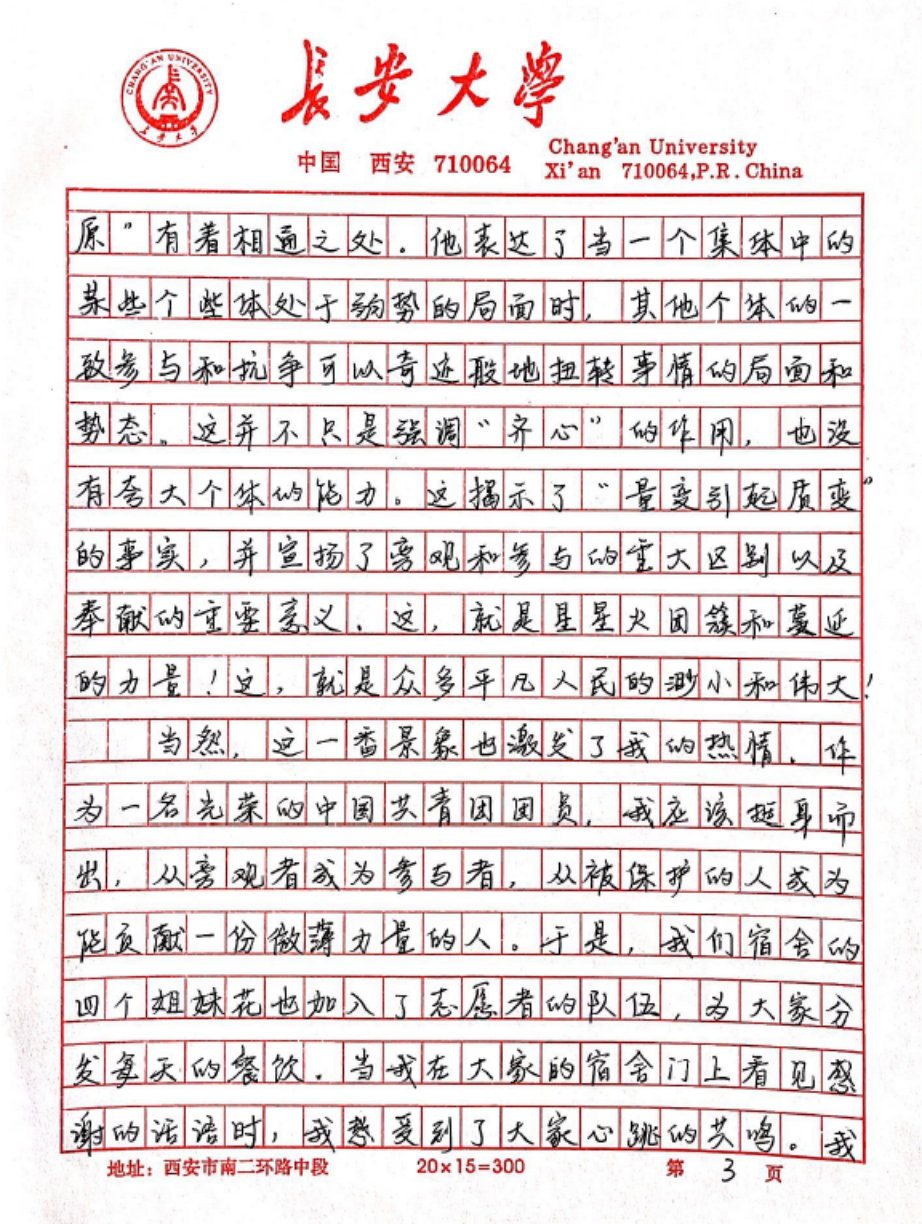 CHANG'AN UNIVERSITY
长安大学
長安大學
中国 西安 710064
Chang'an University
Xi'an 710064,P.R.China
原”有着相通之处。他表达了当一个集体中的
某些个些体处于弱势的局面时,其他个体的一
致参与和抗争可以奇迹般地扭转事情的局面和
势态。这并不只是强调“齐心”的作用,也没
有夸大个体的能力。这揭示了“量变引起质变”
的事实,并宣扬了旁观和参与的重大区别以及
奉献的重要意义。这,就是星星火团簇和蔓延
的力量!这,就是众多平凡人民的渺小和伟大!
当然,这一番景象也激发了我的热情。作
为一名光荣的中国共青团团员,我应该挺身而
出,从旁观者成为参与者,从被保护的人成为
能贡献一份微薄力量的人。于是,我们宿舍的
四个姐妹花也加入了志愿者的队伍,为大家分
发每天的餐饮。当我在大家的宿舍门上看见感
谢的话语时,我感受到了大家心跳的共鸣。我
地址:西安市南二环路中段 20×15=300 第 3 页